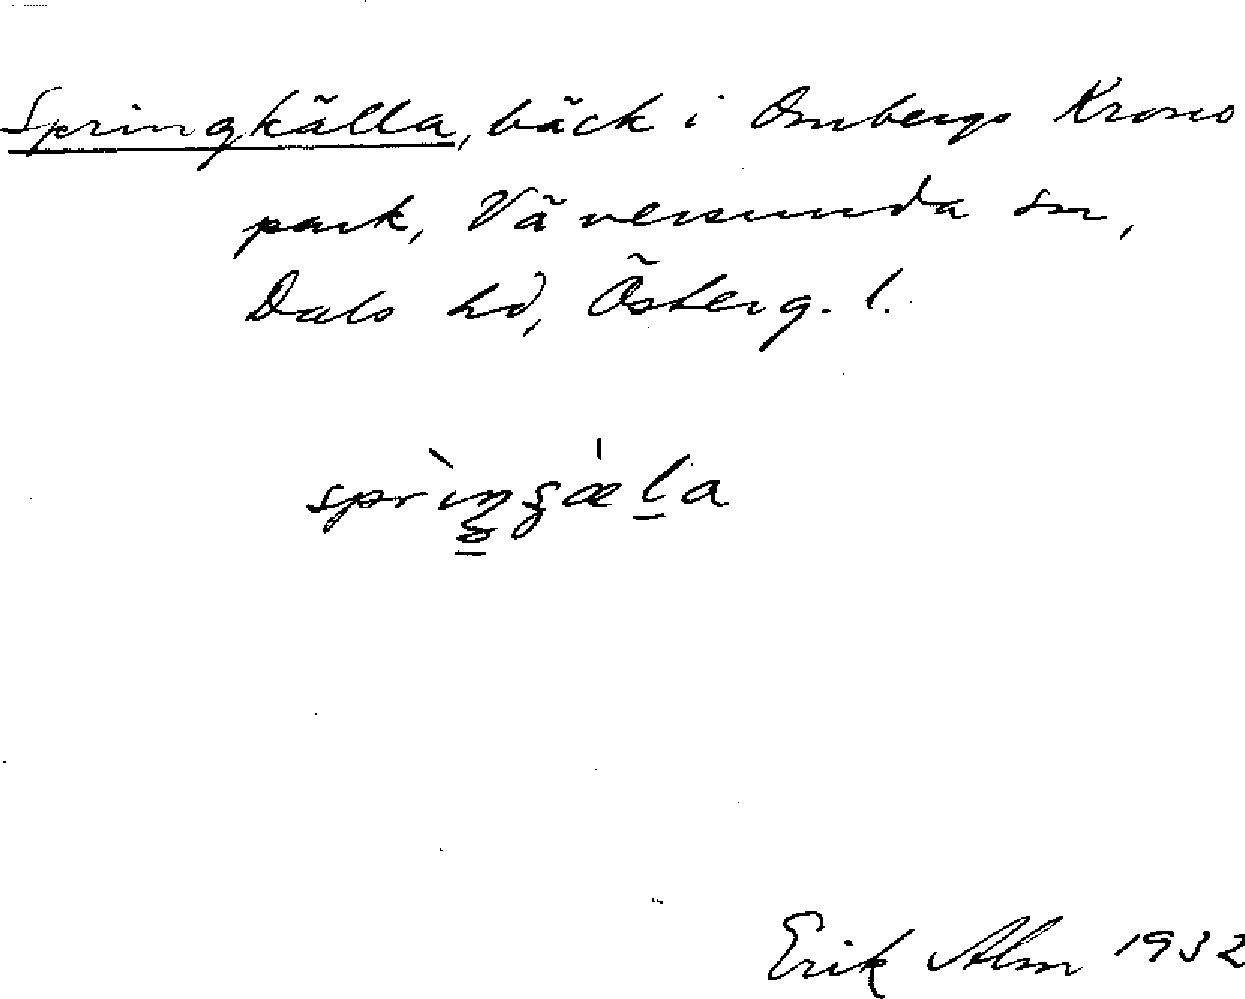 Springkälla, bäck i Ombergs Krono
park, Väversunda sn,
Dals hd, Österg. l.
Erik Alm 1932